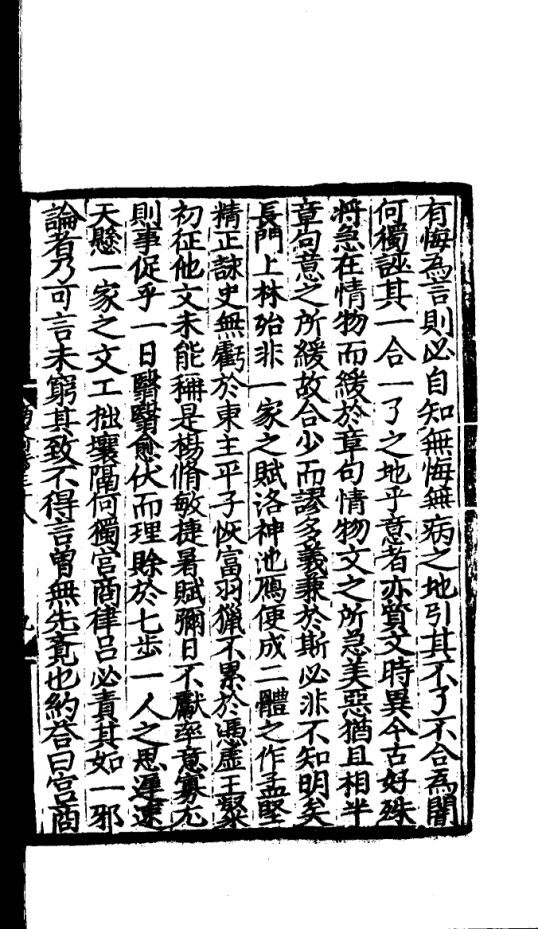 有悔為言則必自知無悔無病之地引其不了不合為闇
何獨誣其一合一了之地乎意者亦質文時異今古好殊
將急在情物而緩於章句情物文之所急美惡猶且相半
章句意之所緩故合少而謬多義兼於斯必非不知明矣
長門上林殆非一家之賦洛神池鴈便成二體之作孟堅
精正詠史無虧於東主平子恢富羽獵不累於憑虛王粲
初征他文未能稱是楊脩敏捷暑賦彌日不獻率意寡尤
則事促乎一日翳翳愈伏而理賒於七步一人之思遲速
天懸一家之文工拙壤隔何獨宮商律呂必責其如一邪
論者乃可言未窮其致不得言曾無先竟也約荅曰宮商